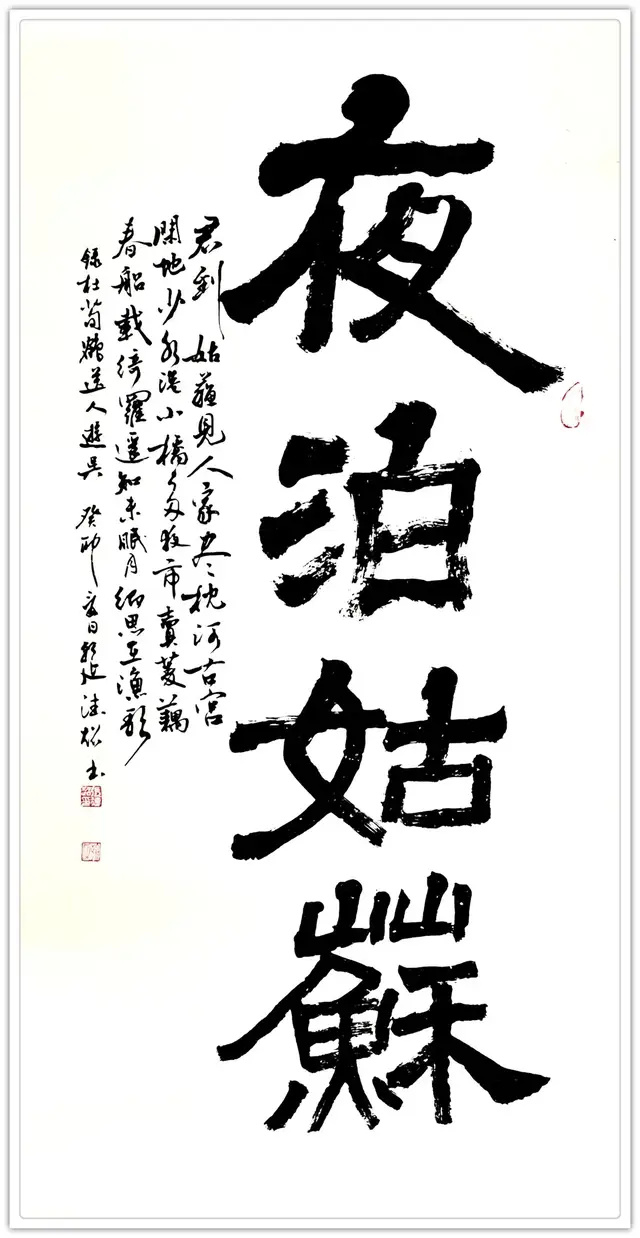 夜泊姑蘇
君到姑蘇見人家盡枕河古宮
閑地少水港小橋多夜市賣菱藕
春船載綺羅遥知未眠月鄉思在漁歌
録杜荀鶴送人遊吳 癸卯夏日書